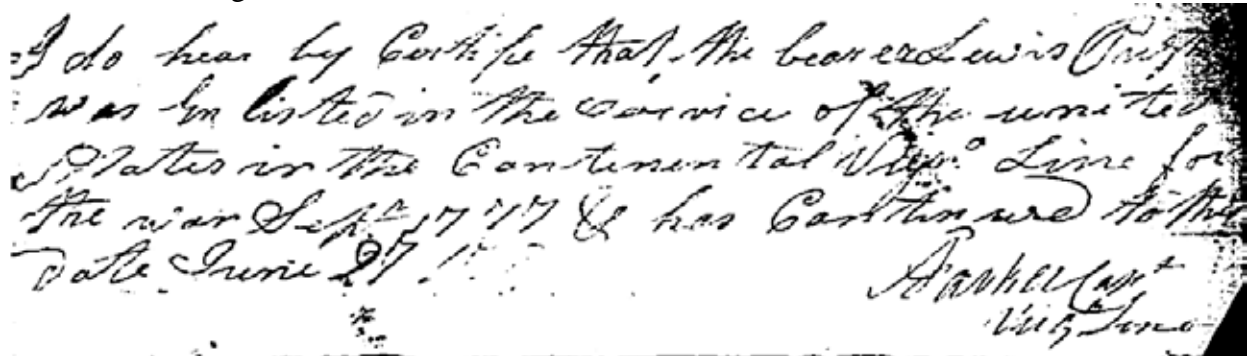 I do hear by Certife that the bearer Lewis
was In listed in the Service of the united
States in the Continental Virgª Line for
the war Sepr 1777 & has Continued to the
date June 27
Parker Capt
Virg Line